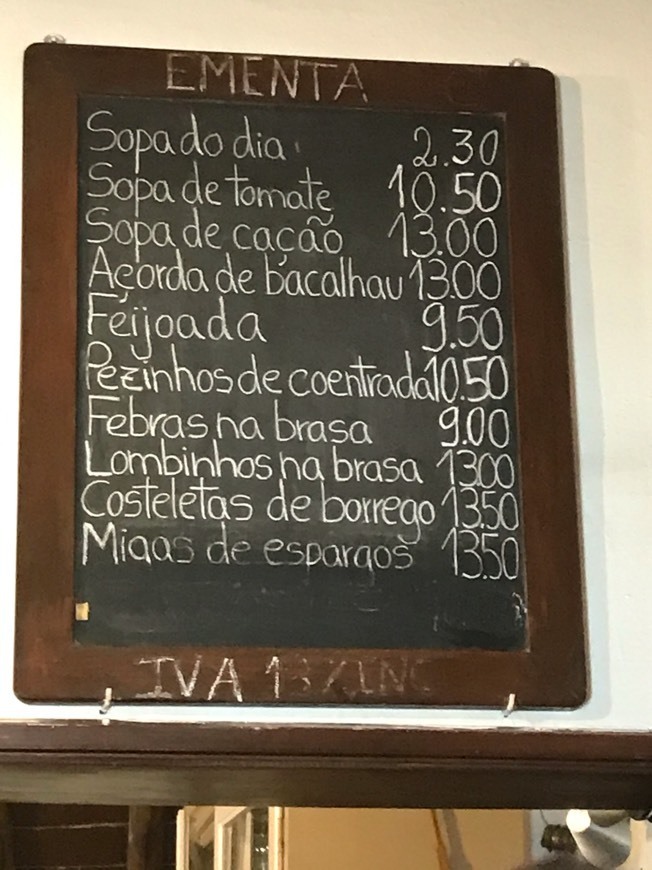 EMENTA
Sopa do dia 2.30
Sopa de tomate 10.50
Sopa de cação 13.00
Açorda de bacalhau 13.00
Feijoada 9.50
Pezinhos de coentrada 10.50
Febras na brasa 9.00
Lombinhos na brasa 13.00
Costeletas de borrego 13.50
Migas de espargos 13.50
IVA 13% INC